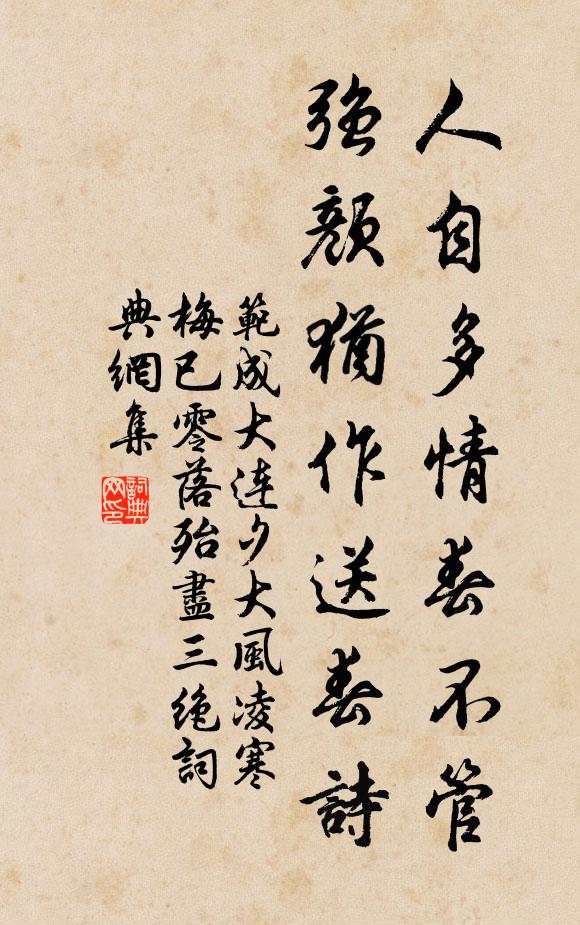 人自多情春不管
強顏猶作送春詩
範成大連夕大風凌寒
梅已零落殆盡三絕詞
典網集
詞典
网印